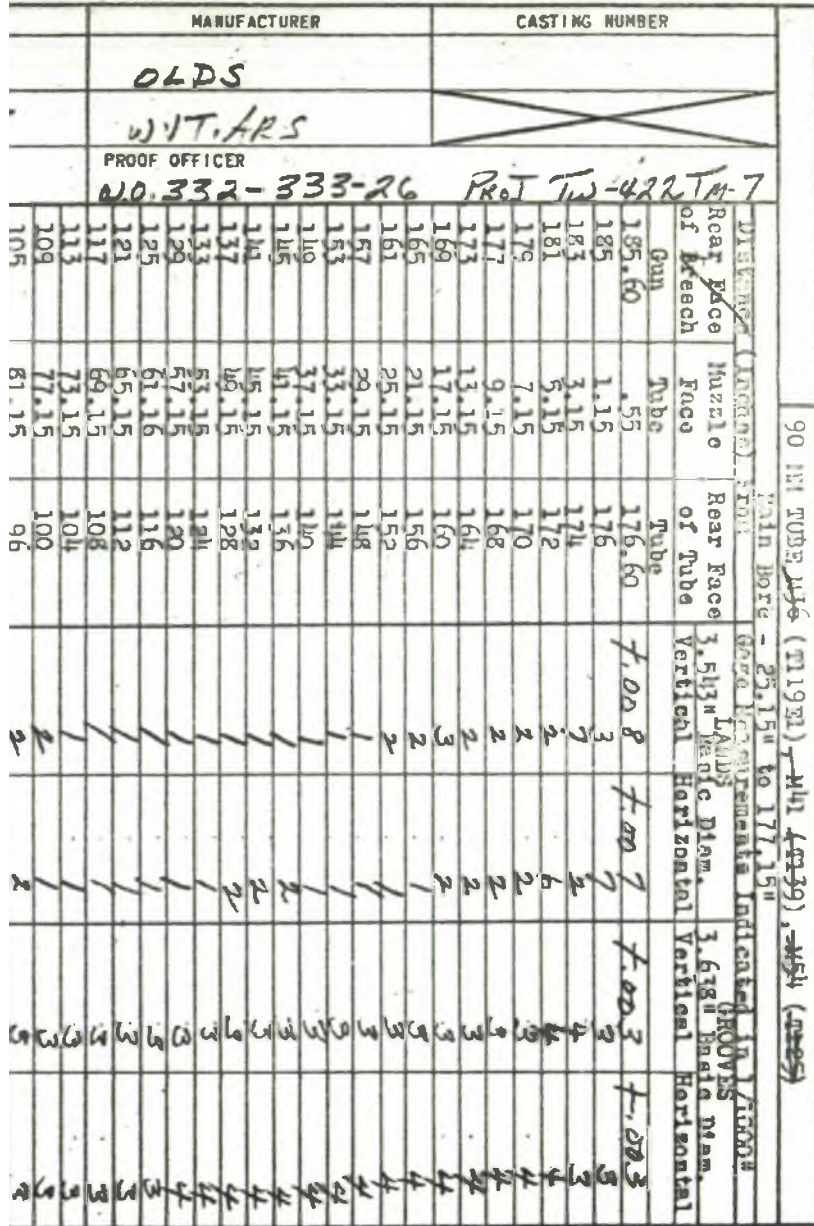 MANUFACTURER CASTING NUMBER
OLDS
WIT. ARS
PROOF OFFICER
W.O. 332-333-26 PROJ TW-422 TM-7
90 MM TUBE M36 (T119E1), M41 (T139), M54 (T125)
Main Bore - 25.15" to 177.15"
Distance (Inches) From Gage Measurements Indicated in 1/1000"
LANDS GROOVES
Rear Face Muzzle Rear Face 3.543" Basic Diam. 3.638" Basic Diam.
of Breech Face of Tube Vertical Horizontal Vertical Horizontal
Gun Tube Tube
185.60 .55 176.60 +.008 +.007 +.003 +.003
185 1.15 176 3 7 3 3
183 3.15 174 2 2 4 3
181 5.15 172 2 4 4
179 7.15 170 2 2 3 4
177 9.15 168 2 2 3 4
173 13.15 164 2 2 3 4
169 17.15 160 3 2 3 4
165 21.15 156 2 1 3 4
161 25.15 152 2 1 3 4
157 29.15 148 1 1 3 4
153 33.15 144 1 1 3 4
149 37.15 140 1 1 3 4
145 41.15 136 1 2 3 4
141 45.15 132 1 2 3 4
137 49.15 128 1 2 3 4
133 53.15 124 1 1 3 4
129 57.15 120 1 1 3 4
125 61.16 116 1 1 3 3
121 65.15 112 1 1 3 3
117 69.15 108 1 1 3 3
113 73.15 104 1 1 3 3
109 77.15 100 2 1 3 3
105 81.15 96 2 2 3 3